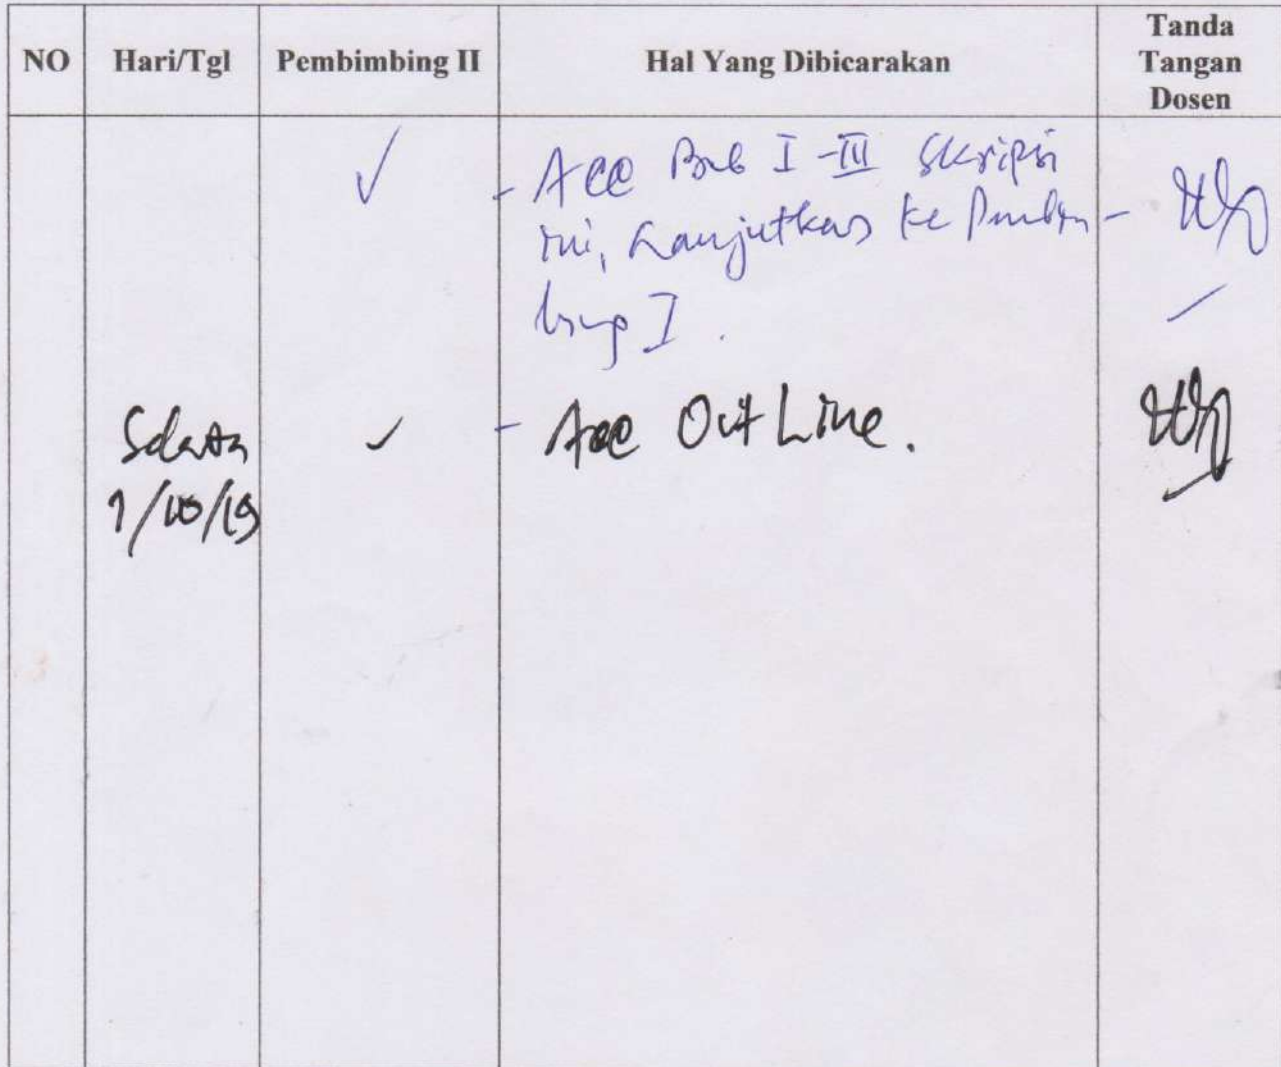 NO Hari/Tgl Pembimbing II Hal Yang Dibicarakan Tanda Tangan Dosen
- Acc Bab I - III Skripsi
ini, Lanjutkan ke Pembim-
bing I.
Selasa - Acc Out Line.
1/10/19